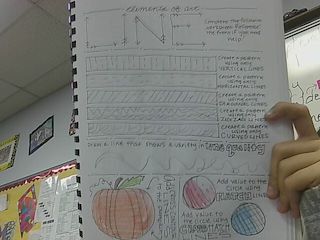 elements of art
LINE
Complete the following
worksheet. Reference
the front if you need
help!
Create a pattern
using only
VERTICAL LINES
Create a pattern
using only
HORIZONTAL LINES
Create a pattern
using only
DIAGONAL LINES
Create a pattern
using only
ZIGZAG LINES
Create a pattern
using only
CURVED LINES
Draw a line that shows a variety in line quality
Add value to
the circle using
Add value to
the circle using
CROSSHATCH